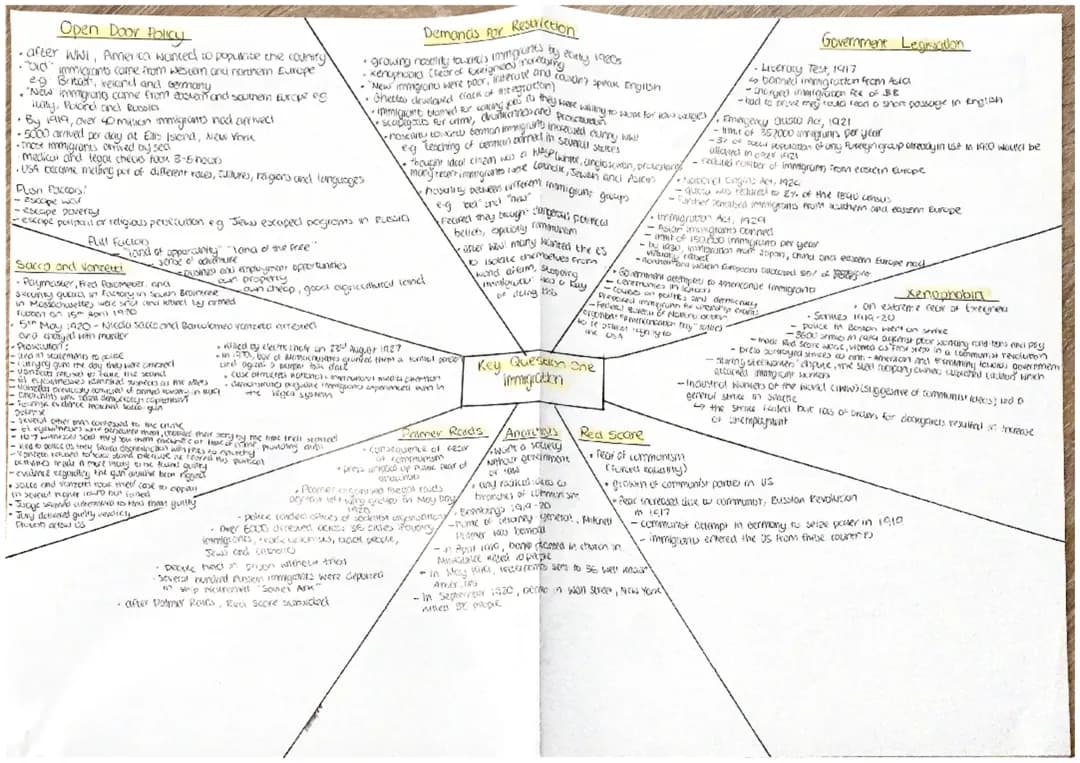 Open Door Policy
• after WWI, America wanted to populate the country
• "Old" immigrants came from Western and northern Europe
e.g. Britain, Ireland and Germany
• "New" immigrants came from eastern and southern Europe e.g
Italy, Poland and Russia
• By 1919, over 40 million immigrants had arrived
• 5000 arrived per day at Ellis Island, New York
• most immigrants arrived by sea
• Medical and legal checks took 3-5 hours
• USA became melting pot of different races, cultures, religions and languages
Push Factors:
- escape war
- escape poverty
- escape political or religious persecution e.g Jews escaped pogroms in Russia
Pull Factors
- "land of opportunity" "land of the free"
- sense of adventure
- business and employment opportunities
- own property
- own cheap, good agricultural land
Demands for Restriction
• growing hostility towards immigrants by early 1920s
• xenophobia (fear of foreigners) increasing
• "New" immigrants were poor, illiterate and couldn't speak English
• Ghettos developed (lack of integration)
• immigrants blamed for taking jobs as they were willing to work for low wages
• scapegoats for crime, drunkenness and prostitution
• hostility towards German immigrants increased during WWI
e.g teaching of German banned in several states
• thought ideal citizen was a WASP (white, anglosaxon, protestant)
many recent immigrants were Catholic, Jewish and Asian
• hostility between different immigrant groups
e.g "old" and "new"
• Feared they brought dangerous political
beliefs, especially communism
• after WWI many wanted the US
to isolate themselves from
world affairs, stopping
immigration was a key
of doing this
Government Legislation
• Literacy Test, 1917
↳ banned immigration from Asia
- charged immigration fee of $8
- had to prove they could read a short passage in English
• Emergency Quota Act, 1921
- limit of 357000 immigrants per year
- 3% of total population of any foreign group already in USA in 1910 would be
allowed in after 1921
- reduced number of immigrants from eastern Europe
• National Origins Act, 1924
- quota was reduced to 2% of the 1890 census
- further penalised immigrants from southern and eastern Europe
• Immigration Act, 1929
- Asian immigrants banned
- limit of 150,000 immigrants per year
- by 1930, immigration from Japan, China and eastern Europe had
virtually ceased
- northern and western Europeans
• Government attempted to Americanise immigrants
- ceremonies in
- courses on politics and democracy
prepared immigrants for citizenship exams
- Federal Bureau of
organised "Americanisation Day"
to
the USA
Xenophobia
• an extreme fear of foreigners
• Strikes 1919-20
- police in Boston went on strike
- 3600 strikes in 1919 against poor working conditions and pay
- made Red Scare worse, viewed as first step in a communist revolution
- press portrayed strikes as anti-American and threatening towards government
- during steelworkers' dispute, the steel company owners published circulars which
attacked immigrant workers
- Industrial Workers of the World (IWW) (suggestive of communist ideas) led a
general strike in Seattle
↳ the strike failed but loss of orders for dockyards resulted in increase
of unemployment
Sacco and Vanzetti
- Paymaster, Fred Parmenter, and
security guard, in factory in South Braintree
in Massachusetts were shot and killed by armed
robbers on 15th April 1920
• 5th May 1920 - Nicola Sacco and Bartolomeo Vanzetti arrested
and charged with murder
• Prosecution:
- lied in statements to police
- carrying guns the day they were arrested
- Vanzetti refused to take the stand
- 61 eyewitnesses identified suspects as the killers
- Vanzetti previously convicted of armed robbery in 1919
- Forensic evidence matched Sacco gun
• Defense
- several other men confessed to the crime
- 107 witnesses said they saw them
• Sacco and Vanzetti took their case to appeal
in several higher courts but failed
• Judge seemed determined to find them guilty
• Jury delivered guilty verdict
• killed by electric chair on 23rd August 1927
• In 1970s, Gov of Massachusetts granted them a formal pardon
• case attracted national + international media attention
• demonstrated prejudice immigrants experienced even in
the legal system
Key Question One
immigration
Palmer Raids
• consequence of fear
of communism
• press whipped up public fear of
anarchism
• Palmer organised illegal raids
against left wing groups in May Day
1920
- police raided offices of socialist organisations
- over 6000 arrested across 36 cities (mostly
immigrants, trade unionists, black people,
Jews and Catholics
• people held in prison without trial
• Several hundred Russian immigrants were deported
in ship nicknamed "Soviet Ark"
• after Palmer Raids, Red Scare subsided
Anarchists
• want a society
without government
or law
• any radical ideas as
branches of communism
• Bombings 1919-20
- home of attorney general, Mitchell
Palmer was bombed
- in April 1919, bomb placed in church in
Milwaukee killed 10 people
- In May 1919, letterbombs sent to 36 well known
Americans
- In September 1920, bomb in Wall Street, New York
killed 38 people
Red Scare
• fear of communism
(forced equality)
• growth of communist parties in US
• Fear increased due to communist, Russian Revolution
in 1917
- communist attempt in Germany to seize power in 1919
- immigrants entered the US from these countries